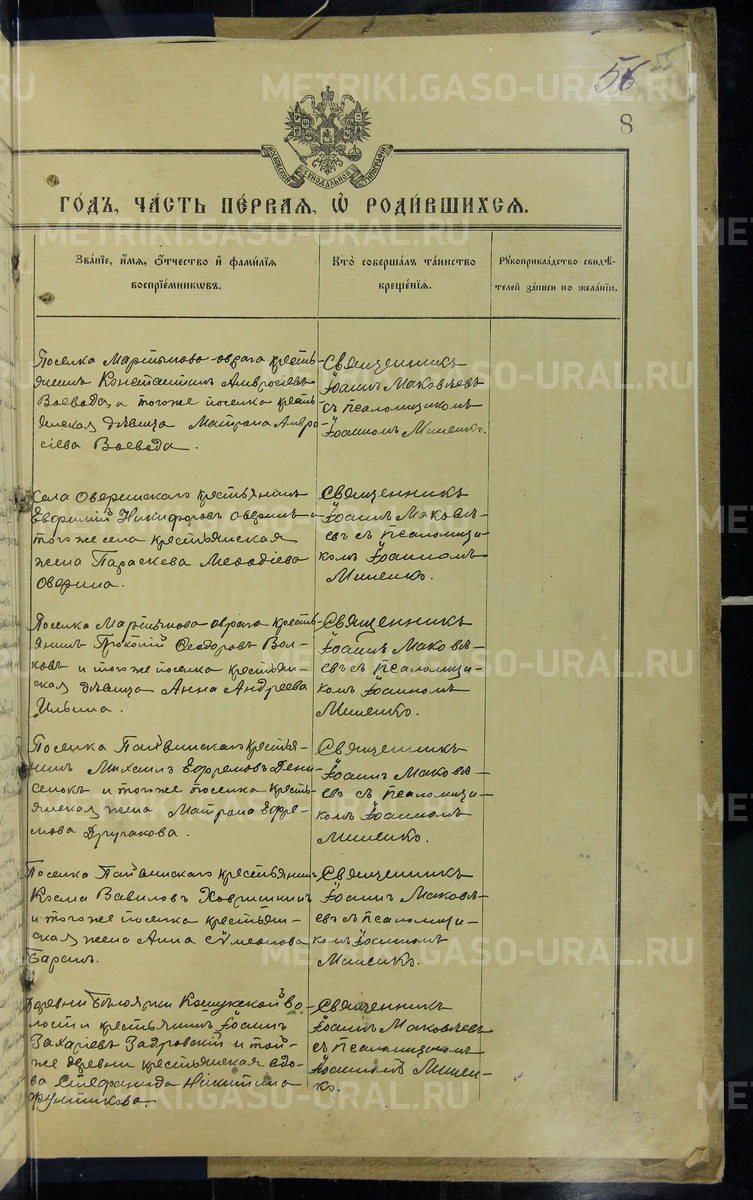 56
55
8
МОСКОВСКОЙ СѴНОДАЛЬНОЙ ТИПОГРАФІИ
ГО́ДЪ, ЧА́СТЬ ПЕ́РВАЯ, Ѡ РОДИ́ВШИХСЯ.
Зва́нїе, и́мя, ѻ҆́тчество и҆ фами́лїя
воспрїе́мникѡвъ.
Кто̀ соверша́лъ та́инство
креще́нїя.
Рꙋкоприкла́дство свидѣ́-
телей за́писи по жела́нїю.
Поселка Мартынова оврага кресть-
янинъ Константинъ Амвросіевъ
Воевода, а тогоже поселка кресть-
янская дѣвица Матрона Амвро-
сіева Воевода.
Священникъ
Іоаннъ Маковѣевъ
съ псаломщикомъ
Іоанномъ Миненко.
Села Оверинскаго крестьянинъ
Евфимій Никифоровъ Оверинъ и
тогоже села крестьянская
жена Параскева Меѳодіева
Оверина.
Священникъ
Іоаннъ Маковѣ-
евъ съ псаломщи-
комъ Іоанномъ
Миненко.
Поселка Мартынова оврага кресть-
янинъ Прокопій Ѳеодоровъ Вол-
ковъ и тогоже поселка крестьян-
ская дѣвица Анна Андреева
Ильина.
Священникъ
Іоаннъ Маковѣ-
евъ съ псаломщи-
комъ Іоанномъ
Миненко.
Поселка Пайвинскаго крестья-
нинъ Михаилъ Ефремовъ Дени-
сенокъ и тогоже поселка кресть-
янская жена Матрона Ефре-
мова Дручакова.
Священникъ
Іоаннъ Маковѣ-
евъ съ псаломщи-
комъ Іоанномъ
Миненко.
Поселка Пайвинскаго крестьянинъ
Косма Вавиловъ
и тогоже поселка крестьян-
ская жена Анна Сѵмеонова
Баранъ.
Священникъ
Іоаннъ Маковѣ-
евъ съ псаломщи-
комъ Іоанномъ
Миненко.
Деревни Бѣлоярки Кошукской во-
лости крестьянинъ Іоаннъ
Захаріевъ Задровскій и той-
же деревни крестьянская вдо-
ва Стефанида Никитина
Фунтикова.
Священникъ
Іоаннъ Маковѣевъ
съ псаломщикомъ
Іоанномъ Минен-
ко.
METRIKI.GASO-URAL.RU